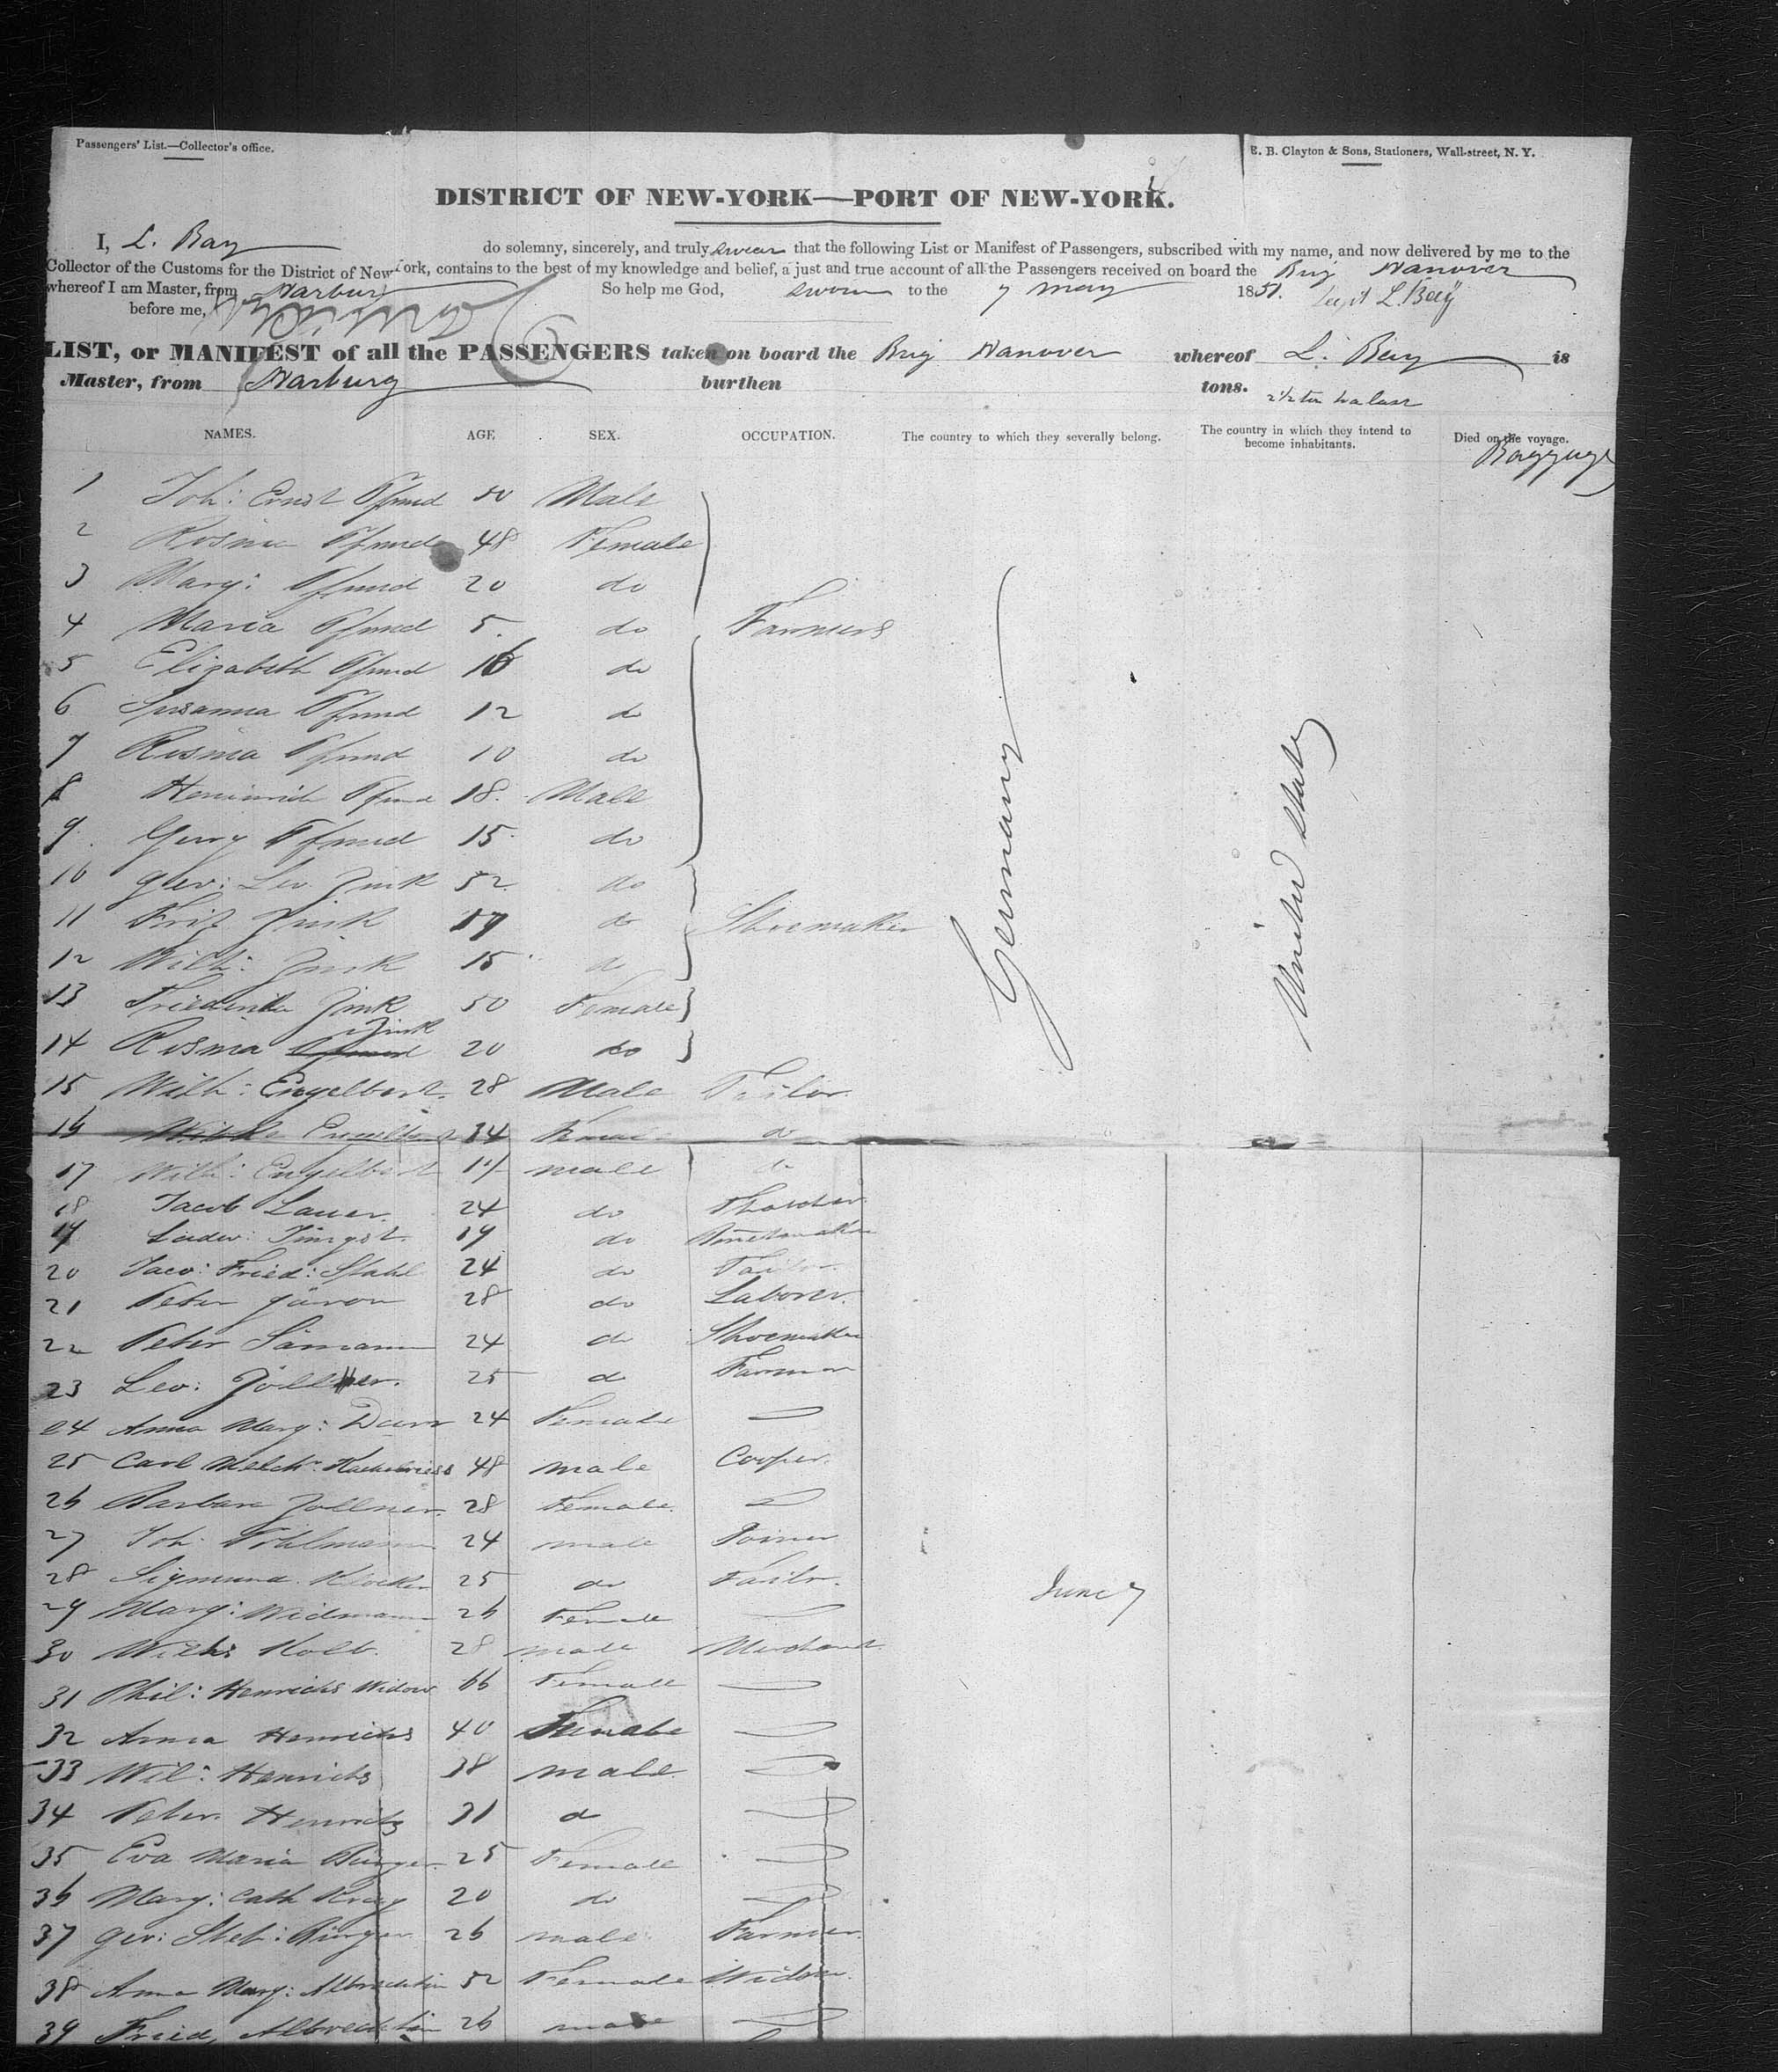 Passengers' List.—Collector's office.
E. B. Clayton & Sons, Stationers, Wall-street, N. Y.
DISTRICT OF NEW-YORK—PORT OF NEW-YORK.
I, L. Bay do solemny, sincerely, and truly swear that the following List or Manifest of Passengers, subscribed with my name, and now delivered by me to the
Collector of the Customs for the District of New York, contains to the best of my knowledge and belief, a just and true account of all the Passengers received on board the Brig Hanover
whereof I am Master, from Harburg So help me God, sworn to the 7 may 1851. L. Bay
before me,
LIST, or MANIFEST of all the PASSENGERS taken on board the Brig Hanover whereof L. Bay is
Master, from Harburg burthen tons.
NAMES. AGE SEX. OCCUPATION. The country to which they severally belong. The country in which they intend to become inhabitants. Died on the voyage.
Baggage
1 Joh: Ernst Pfund 50 Male
2 Rosina Pfund 48 Female
3 Marg: Pfund 20 do
4 Maria Pfund 5. do Farmers
5 Elizabeth Pfund 16 do
6 Susanna Pfund 12 do
7 Rosina Pfund 10 do
8 Heinrich Pfund 18. Male
9. Georg Pfund 15. do
10 Geo: Leo Zink 52 do
11 Fritz Zink 19 do Shoemaker
12 Wilh: Zink 15 do
13 Friedrika Zink 50 Female
14 Rosina Zink 20 do
15 Wilh: Engelbert 28 Male Tailor
16 Engelbert 34 do
17 Wilh: Engelbert male do
18 Jacob Lauer 24 do
19 Ludw: Jüngst 19 do
20 Jaco: Fried: Stahl 24 do Tailor
21 Peter 28 do Laborer.
22 Peter Sämann 24 do Shoemaker
23 Leo: Zöllner. 25 do Farmer
24 Anna Marg: 24 Female
25 Carl Melch: 48 male Cooper.
26 Barbara Zollner 28 Female
27 Joh Pöhlmann 24 male Joiner
28 Sigmund Klocker 25 do Tailor.
29 Marg: Widmann 26 Female
30 Kolb. 28 male Merchant
31 Phil: Henrichs Widow 66 Female
32 Anna Henrichs 40 Female
33 Wil: Henrichs 38 male
34 Peter Henrichs 31 do
35 Eva Maria Bürger 25 Female
36 Marg: Cath 20 do
37 Geo: Bürger 26 male Farmer
38 Anna Marg: Albrechtin 52 Female Widow.
39 Fried Albrechtin 26 male
Germany
United States
June 7